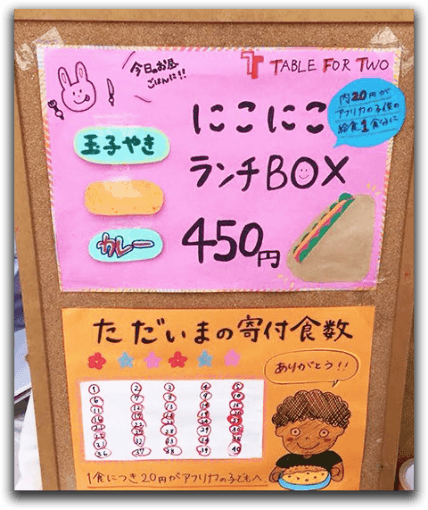 今日のお昼
ごはんに!!
TABLE FOR TWO
内20円が
アフリカの子供の
給食1食分に
にこにこ
ランチBOX
450円
玉子やき
カレー
ただいまの寄付食数
ありがとう!!
1食につき20円がアフリカの子どもへ